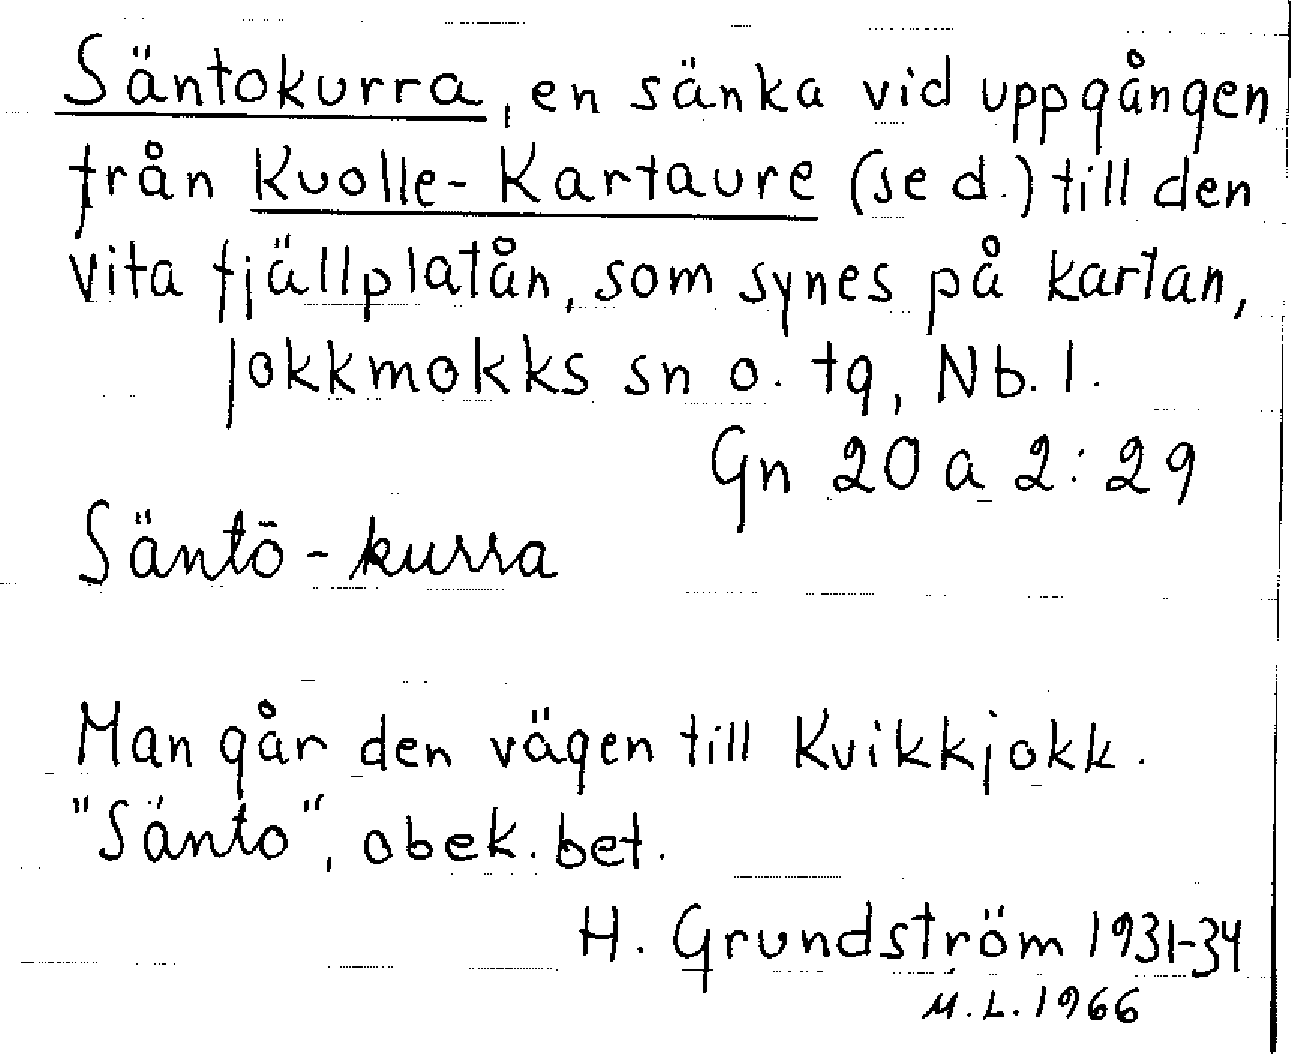 Säntokurra, en sänka vid uppgången
från Kuolle-Kartaure (se d.) till den
vita fjällplatån, som synes på kartan,
Jokkmokks sn o. tg, Nb. l.
Gn 20 a 2:29
Säntō-kurra
Man går den vägen till Kvikkjokk.
"Sänto", obek. bet.
H. Grundström 1931-34
M.L. 1966